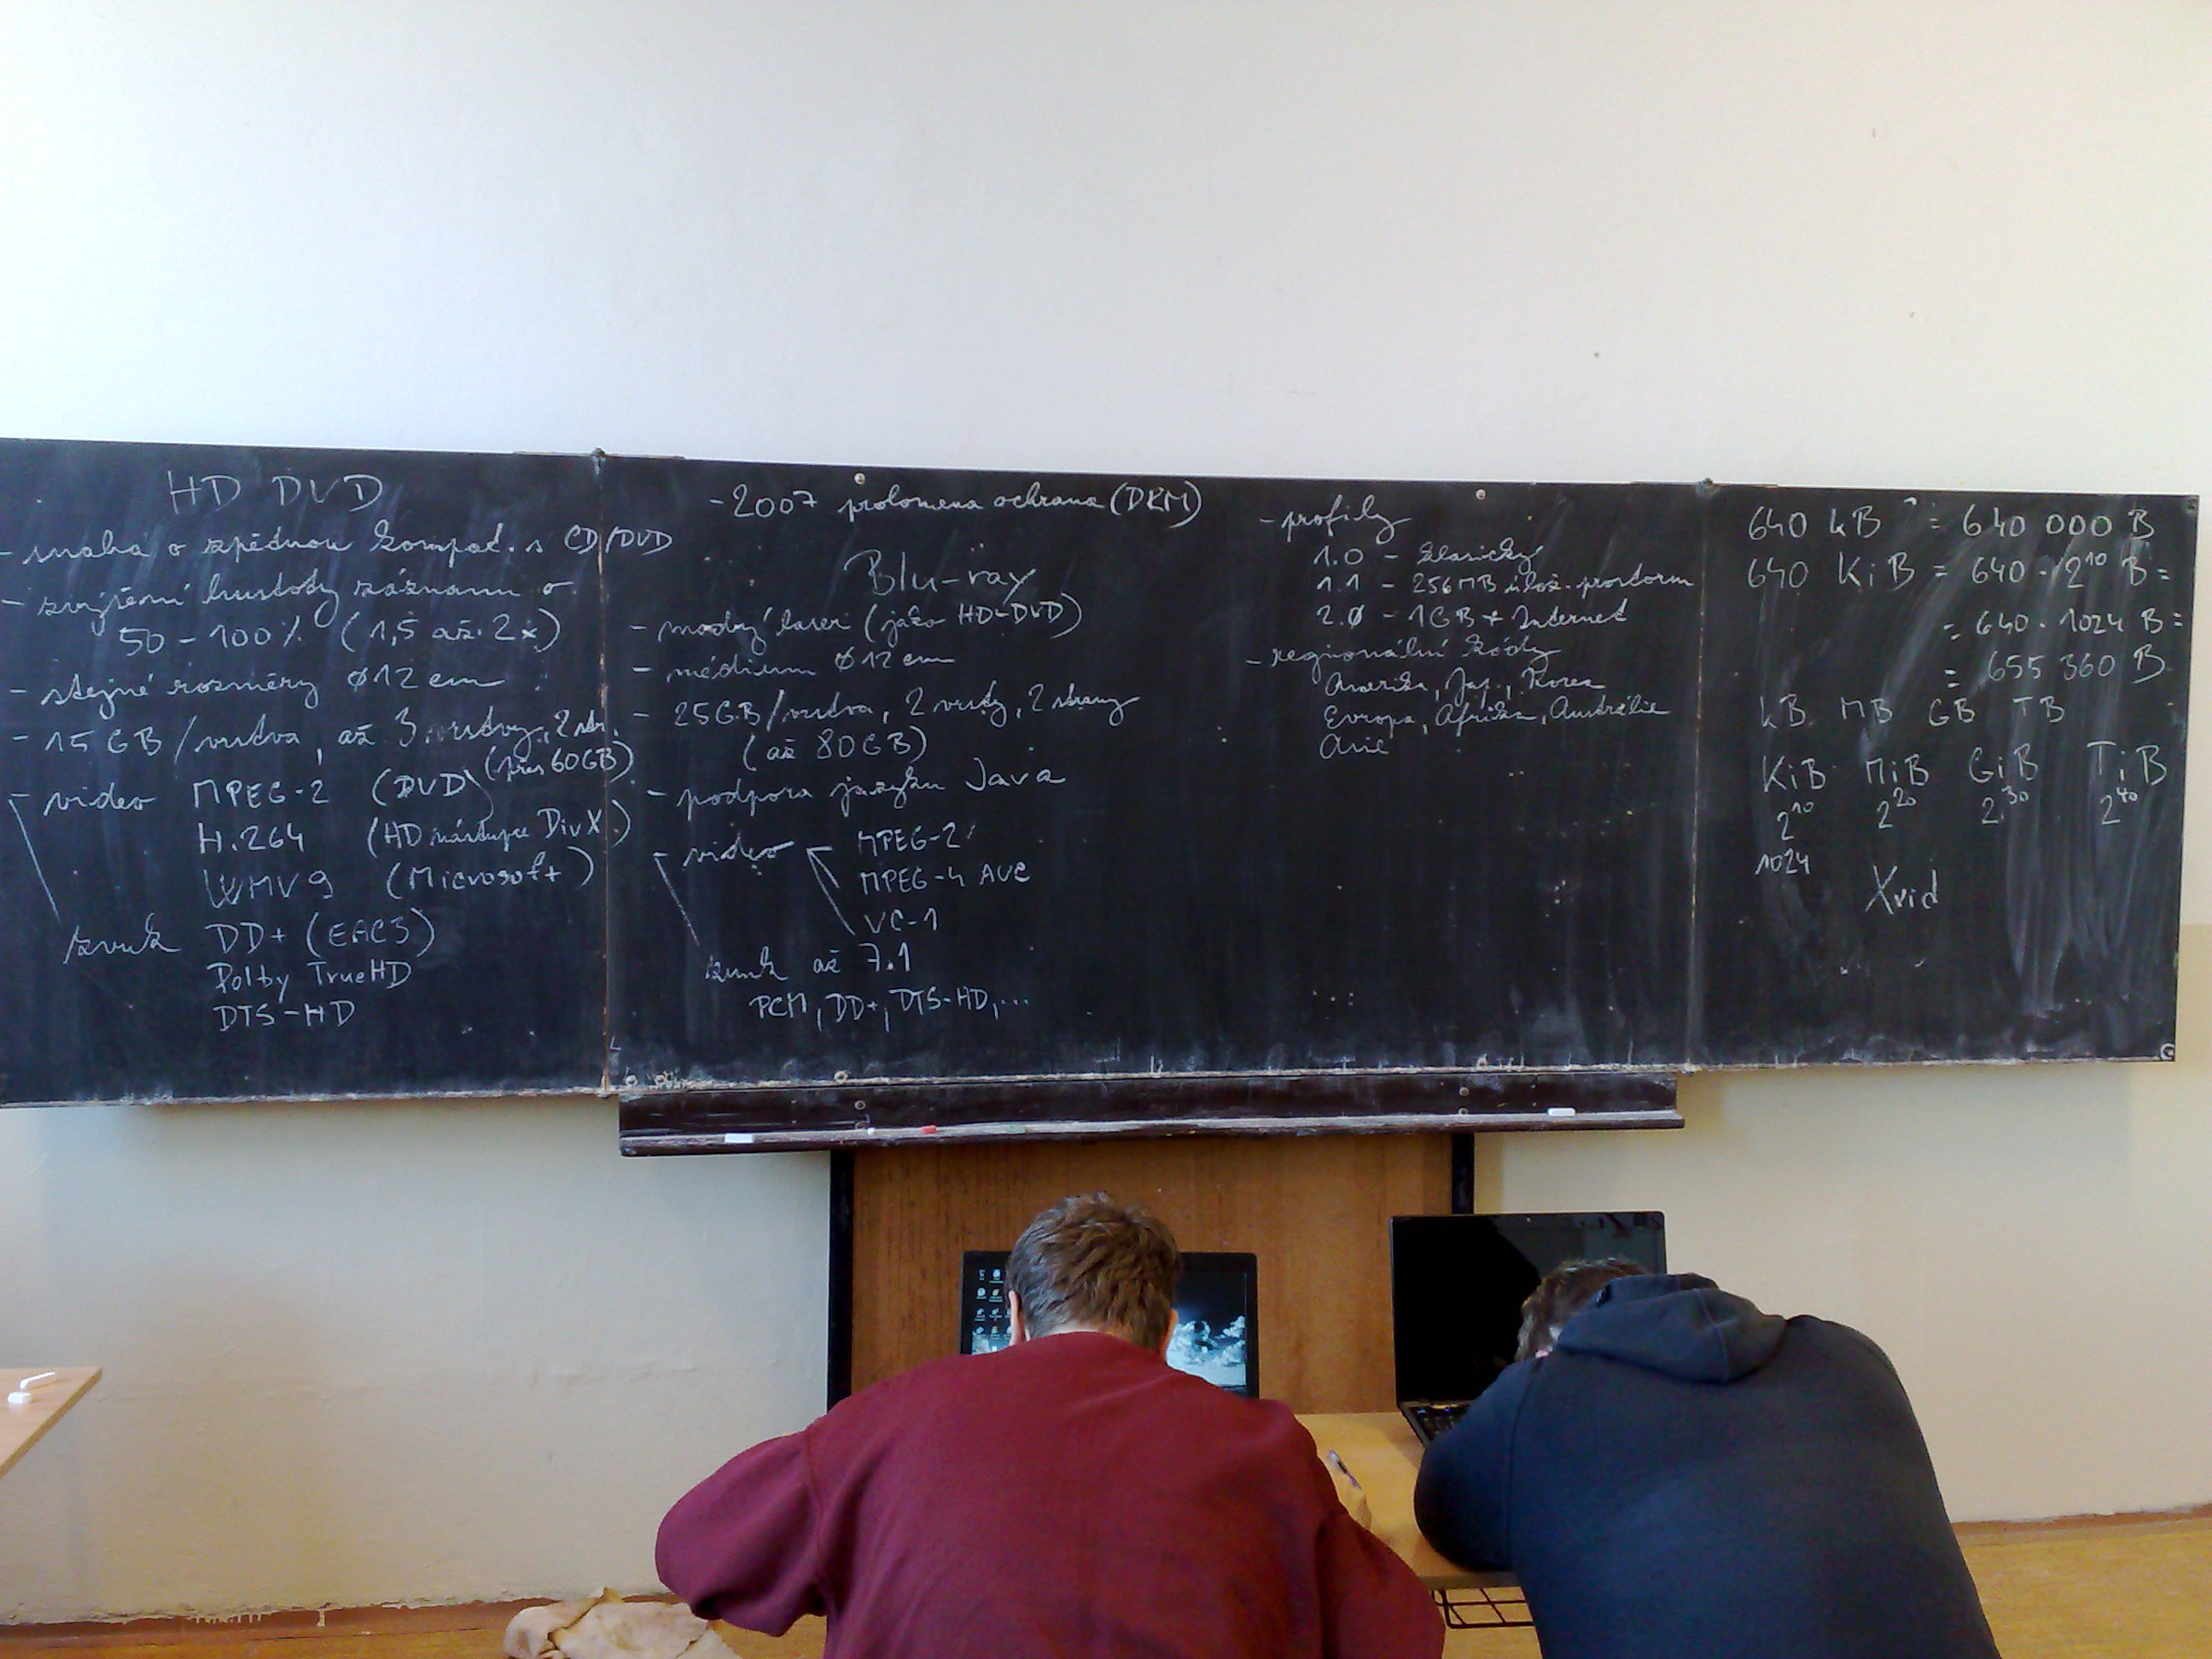 HD DVD
- snaha o zpědnou kompat. s CD/DVD
- zvýšení hustoty záznamu o
50 - 100% (1,5 až 2x)
- stejné rozměry ø12 cm
- 15 GB/vrstva, až 3 vrstvy, 2 str.
(přes 60GB)
- video MPEG-2 (DVD)
H.264 (HD nástupce DivX)
WMV9 (Microsoft)
zvuk DD+ (EAC3)
Dolby TrueHD
DTS-HD
- 2007 prolomena ochrana (DRM)
Blu-ray
- modrý laser (jako HD-DVD)
- médium ø12 cm
- 25GB/vrstva, 2 vrstvy, 2 strany
(až 80GB)
- podpora jazyku Java
- video MPEG-2
MPEG-4 AVC
VC-1
zvuk až 7.1
PCM, DD+, DTS-HD, ...
- profily
1.0 - klasický
1.1 - 256MB úlož. prostoru
2.0 - 1GB + Internet
- regionální kódy
Amerika, Jap., Korea
Evropa, Afrika, Austrálie
Asie
640 kB = 640 000 B
640 KiB = 640 · 2¹⁰ B =
= 640 · 1024 B =
= 655 360 B
kB MB GB TB
KiB MiB GiB TiB
2¹⁰ 2²⁰ 2³⁰ 2⁴⁰
1024
Xvid